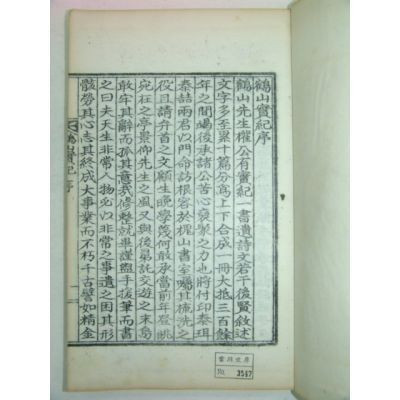 鶴山實紀序
鶴山先生權公有實紀一書遺詩文若干後賢敘述
文字多至累十篇分爲上下合成一冊大抵三百餘
年之間嗣後承諸公苦心裒聚之力也將付印泰珥
泰喆兩君以門命訪根容於梶山書室囑其梳洗之
役且請弁首之文顧生晚學淺何敢承當前年登眺
宛在之亭景仰先生之風又與後昆託交遊之末烏
敢牢其辭而孤其意哉修整就畢謹盥手援筆而書
之曰夫天生非常人物必以非常之事遺之困其形
骸勞其心志其終成大事業而不朽千古譬如精金
鶴山實紀 序
No. 3547